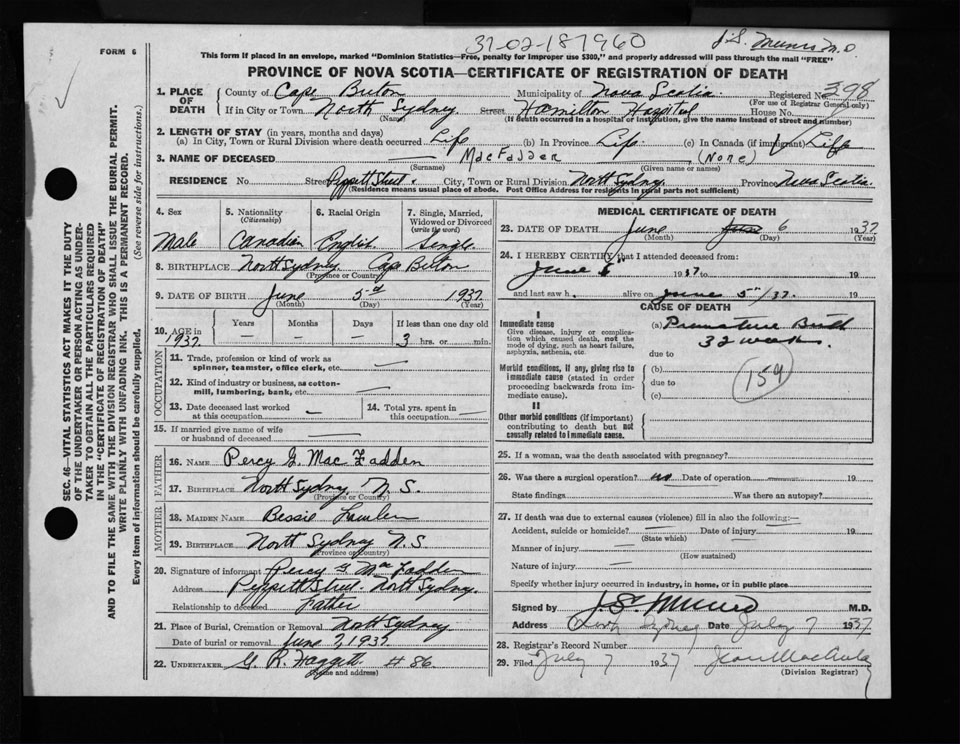 FORM 6
31-02-187960
J.S. Munro M.D
This form if placed in an envelope, marked "Dominion Statistics—Free, penalty for improper use $300," and properly addressed will pass through the mail "FREE"
PROVINCE OF NOVA SCOTIA—CERTIFICATE OF REGISTRATION OF DEATH
1. PLACE OF DEATH
County of Cape Breton Municipality of Nova Scotia Registered No. 398
(For use of Registrar General only)
If in City or Town North Sydney Street Hamilton Hospital House No.
(Name) (If death occurred in a hospital or institution, give the name instead of street and number)
2. LENGTH OF STAY (in years, months and days)
(a) In City, Town or Rural Division where death occurred Life (b) In Province Life (c) In Canada (if immigrant) Life
3. NAME OF DECEASED MacFadden (None)
(Surname) (Given name or names)
RESIDENCE No. Street Peppett Street City, Town or Rural Division North Sydney Province Nova Scotia
(Residence means usual place of abode. Post Office Address for residents in rural parts not sufficient)
4. Sex
Male
5. Nationality (Citizenship)
Canadian
6. Racial Origin
English
7. Single, Married, Widowed or Divorced (write the word)
Single
8. BIRTHPLACE North Sydney Cape Breton
(Province or Country)
9. DATE OF BIRTH June 5th 1937
(Month) (Day) (Year)
10. AGE in Years Months Days If less than one day old
1937 — — — 3 hrs. or min.
OCCUPATION
11. Trade, profession or kind of work as spinner, teamster, office clerk, etc. —
12. Kind of industry or business, as cotton-mill, lumbering, bank, etc. —
13. Date deceased last worked at this occupation — 14. Total yrs. spent in this occupation —
15. If married give name of wife or husband of deceased —
FATHER
16. NAME Percy G. MacFadden
17. BIRTHPLACE North Sydney N.S.
(Province or Country)
MOTHER
18. MAIDEN NAME Bessie
19. BIRTHPLACE North Sydney N.S.
(Province or Country)
20. Signature of informant Percy G. MacFadden
Address Peppett Street North Sydney.
Relationship to deceased Father
21. Place of Burial, Cremation or Removal North Sydney
Date of burial or removal June 7, 1937.
22. UNDERTAKER G. R. Haggett # 86.
(Name and address)
MEDICAL CERTIFICATE OF DEATH
23. DATE OF DEATH June June 6 1937
(Month) (Day) (Year)
24. I HEREBY CERTIFY that I attended deceased from:
June 5 1937 to 19
and last saw h. alive on June 5"/37. 19
CAUSE OF DEATH
I
Immediate cause
Give disease, injury or complication which caused death, not the mode of dying, such as heart failure, asphyxia, asthenia, etc.
(a) Premature Birth
32 weeks.
due to
Morbid conditions, if any, giving rise to immediate cause (stated in order proceeding backwards from immediate cause).
(b)
due to
(c)
159
II
Other morbid conditions (if important) contributing to death but not causally related to immediate cause.
25. If a woman, was the death associated with pregnancy?
26. Was there a surgical operation? no Date of operation —
State findings Was there an autopsy?
27. If death was due to external causes (violence) fill in also the following:—
Accident, suicide or homicide? — Date of injury 19
(State which)
Manner of injury —
(How sustained)
Nature of injury —
Specify whether injury occurred in industry, in home, or in public place
Signed by J.S. Munro M.D.
Address North Sydney Date July 7 1937
28. Registrar's Record Number
29. Filed July 7 1937
(Division Registrar)
SEC. 46—VITAL STATISTICS ACT MAKES IT THE DUTY
OF THE UNDERTAKER OR PERSON ACTING AS UNDER-
TAKER TO OBTAIN ALL THE PARTICULARS REQUIRED
IN THE "CERTIFICATE OF REGISTRATION OF DEATH"
AND TO FILE THE SAME WITH THE DIVISION REGISTRAR WHO SHALL ISSUE THE BURIAL PERMIT.
WRITE PLAINLY WITH UNFADING INK. THIS IS A PERMANENT RECORD.
Every item of information should be carefully supplied. (See reverse side for instructions.)